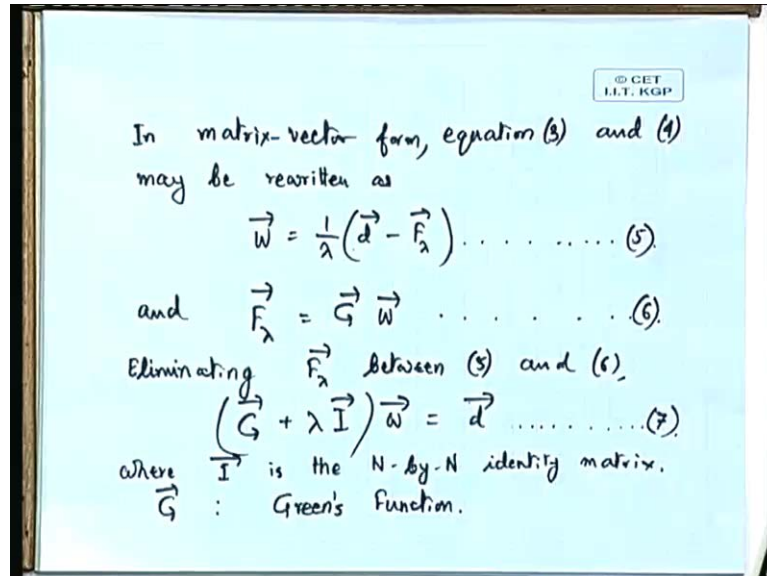 © CET
I.I.T. KGP
In matrix-vector form, equation (3) and (4)
may be rewritten as
W⃗ = 1/λ (d⃗ - F⃗_λ) . . . . . . . . . . (5).
and F⃗_λ = G⃗ w⃗ . . . . . . . (6).
Eliminating F⃗_λ between (5) and (6),
(G⃗ + λ I⃗) w⃗ = d⃗ . . . . . . . . . . (7).
where I⃗ is the N-by-N identity matrix.
G⃗ : Green's Function.